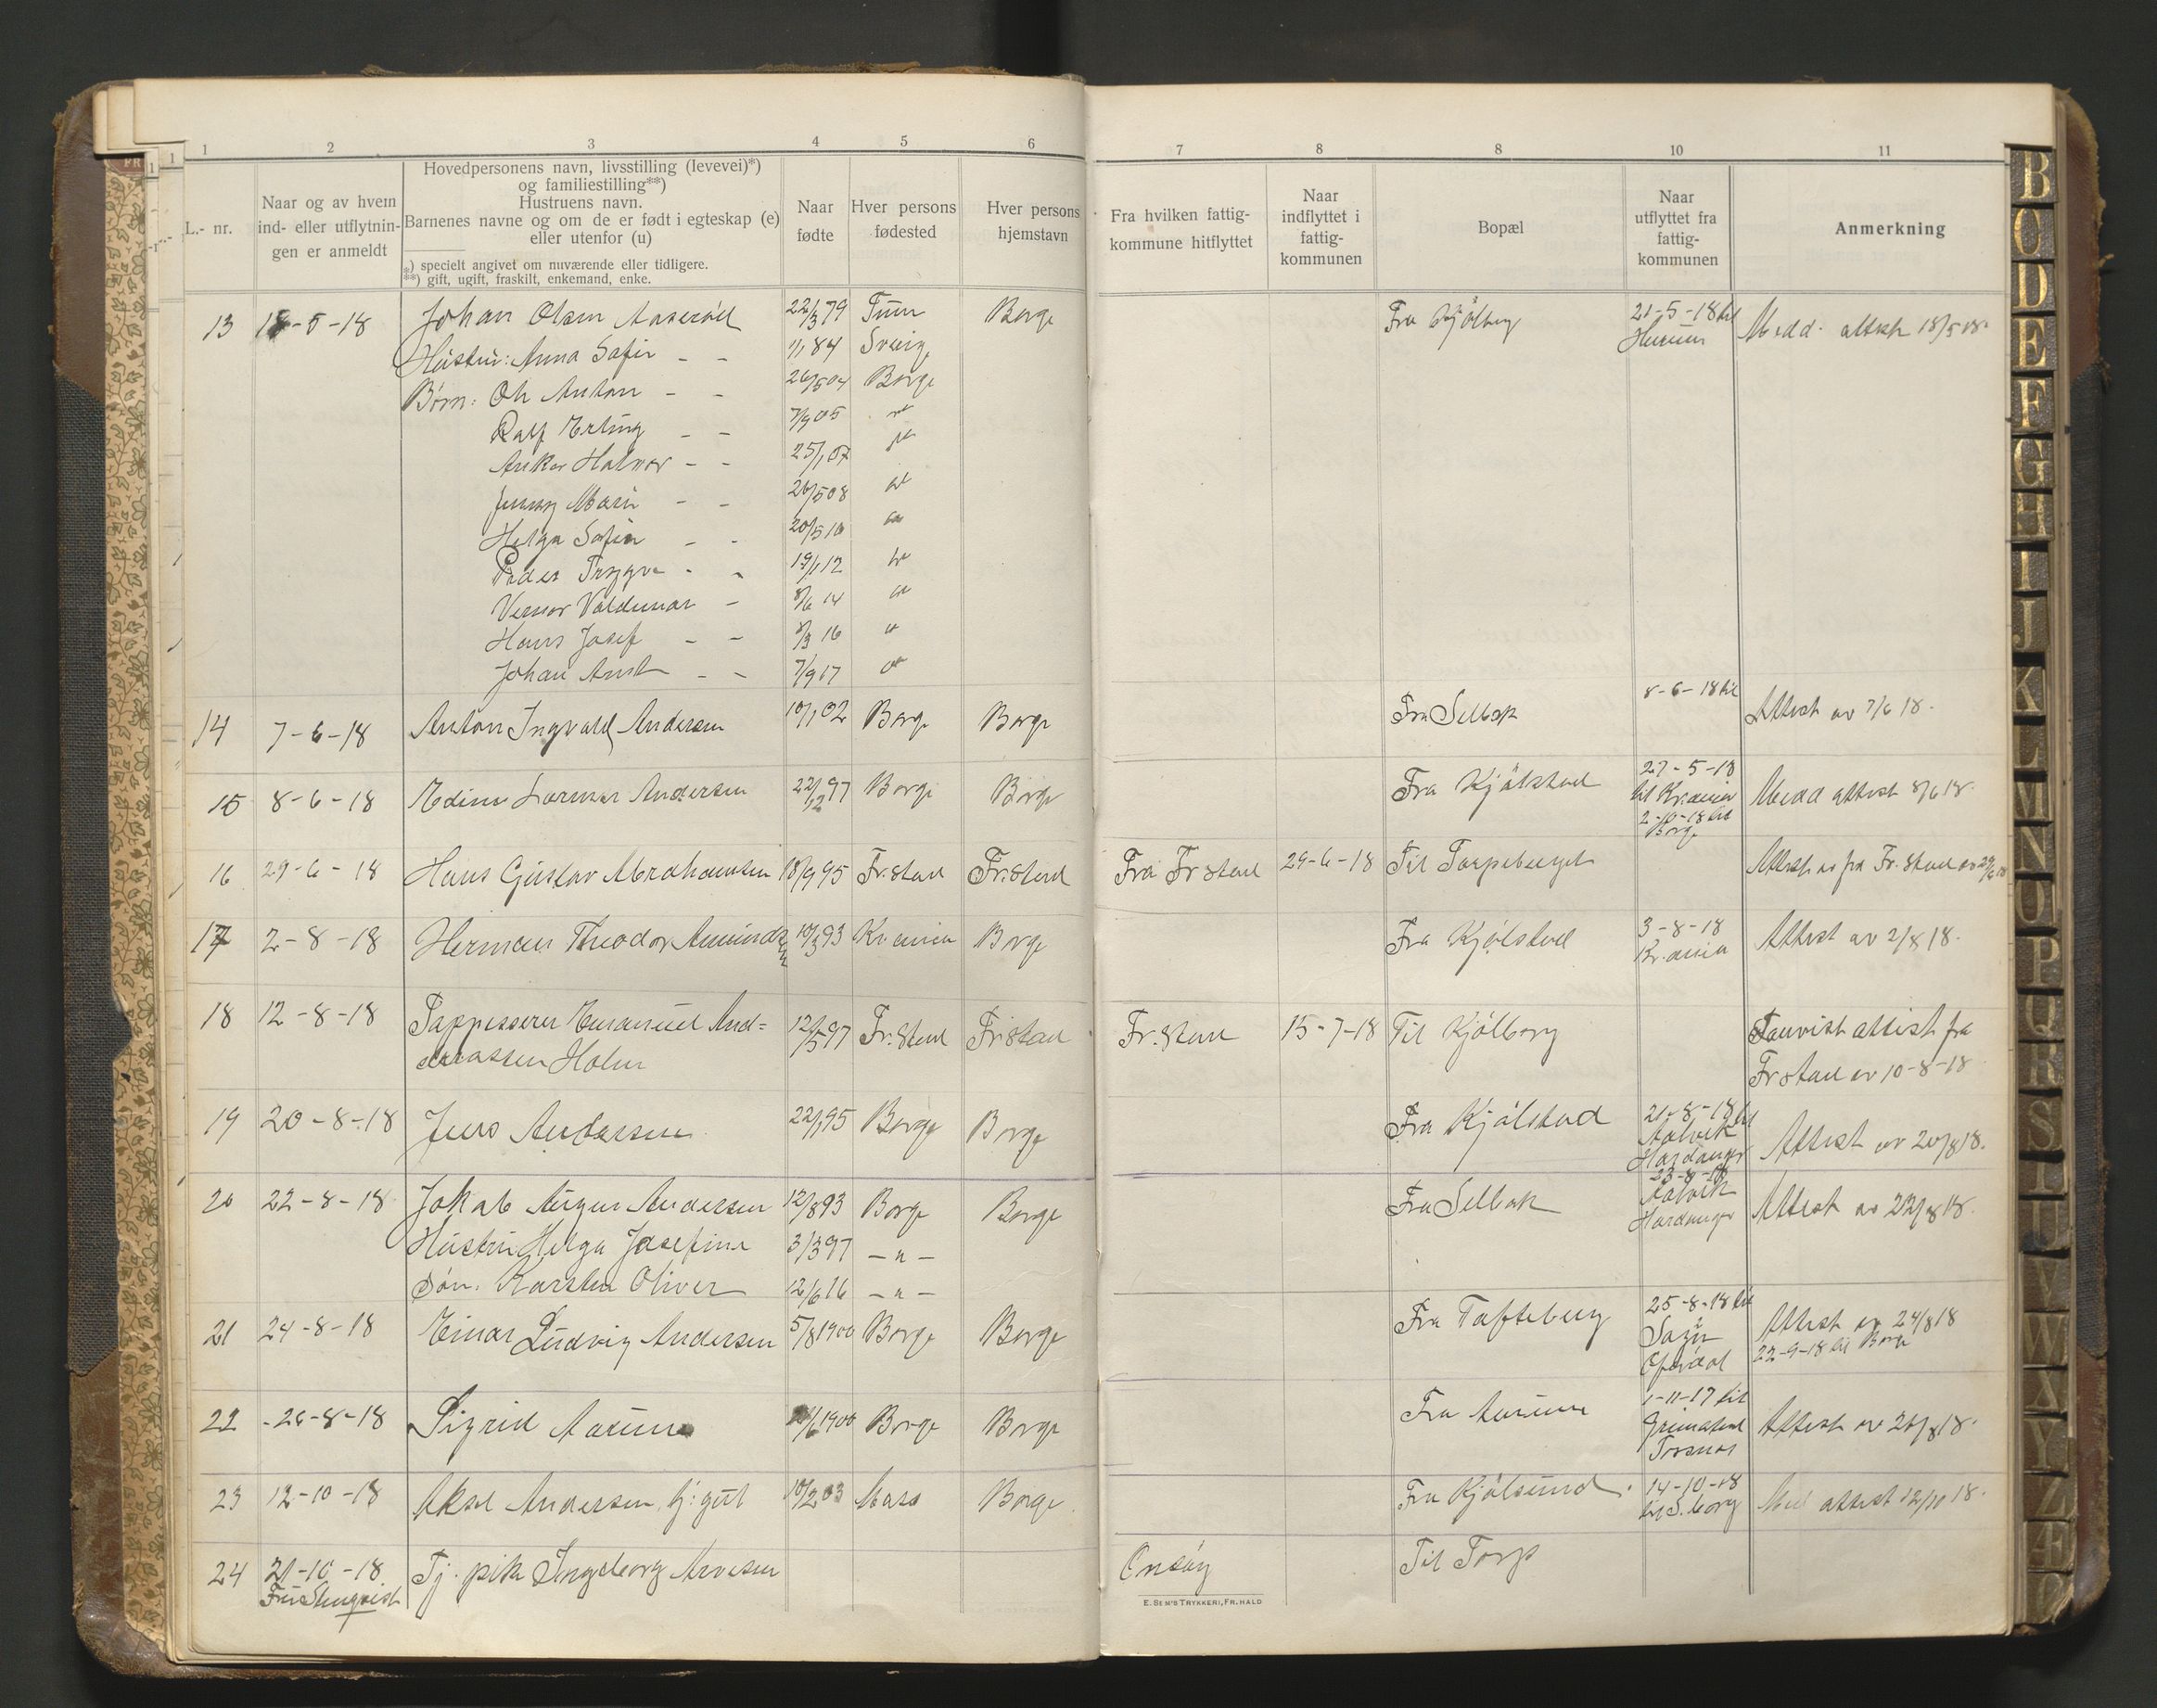 1 2 3 4 5 6 7 8 8 10 11
L.- nr.
Naar og av hvem
ind- eller utflytnin-
gen er anmeldt
Hovedpersonens navn, livsstilling (levevei)*)
og familiestilling**)
Hustruens navn.
Barnenes navne og om de er født i egteskap (e)
eller utenfor (u)
*) specielt angivet om nuværende eller tidligere.
**) gift, ugift, fraskilt, enkemand, enke.
Naar
fødte
Hver persons
fødested
Hver persons
hjemstavn
Fra hvilken fattig-
kommune hitflyttet
Naar
indflyttet i
fattig-
kommunen
Bopæl
Naar
utflyttet fra
fattig-
kommunen
Anmerkning
13 18-5-18 Johan Olsen Aaserød 22/3 79 Tune Borge Fra Kjölberg 21-5-18 til Hurum Medd. attest 18/5 18.
Hustru: Anna Sofie - - 84 Sverig
Børn: Ole Anton - - 26/5 04 Borge
Ralf Erling - - 7/9 05 "
Anker Halvor - - 25/1 07 "
Jenny Marie - - 26/5 08 "
Helga Sofie - - 20/5 10 "
Peder Trygve - - 19/1 12 "
Verner Valdemar - 8/6 14 "
Hans Josef - - 8/3 16 "
Johan - - 7/9 17 "
14 7-6-18 Anton Ingvald Andersen 10/1 02 Borge Borge Fra Selbak 8-6-18 til Attest av 7/6 18.
15 8-6-18 Andersen 22/12 97 Borge Borge Fra Kjölstad 27-5-18 til Kr.ania 2-10-18 til Borge Medd attest 8/6 18.
16 29-6-18 Hans Gustav Abrahamsen 18/9 95 Fr.stad Fr.stad Fra Fr stad 29-6-18 Til Torpeberget Attest av fra Fr.stad av 29/6 18
17 2-8-18 Herman Theodor Amundsen 10/3 93 Kr ania Borge Fra Kjölstad 3-8-18 Kr.ania Attest av 2/8 18.
18 12-8-18 Tappesserer Emanuel And= 12/5 97 Fr.stad Fr.stad Fr.stad 15-7-18 Til Kjölberg Fanvist attest fra
reassen Holm Fr stad av 10-8-18
19 20-8-18 Jens Andersen 22/1 95 Borge Borge Fra Kjölstad 21-8-18 til Aalvik Hardanger Attest av 20/8 18.
20 22-8-18 Jakob August Andersen 12/8 93 Borge Borge Fra Selbak 23-8-18 Aalvik Hardanger Attest av 22/8 18.
Hustru Helga Josefine 3/3 97 - " -
Søn. Karsten Oliver 12/6 16 - " -
21 24-8-18 Einar Ludvig Andersen 5/8 1900 Borge Borge Fra Tofteberg 25-8-18 til Sogn Attest av 24/8 18
22-9-18 til Borge
22 -26-8-18 Sigrid Aarum 1900 Borge Borge Fra Aarum 1-11-17 til Attest av 26/8 18.
23 12-10-18 Aksel Andersen, tj: gut 10/2 03 Moss Borge Fra Kjölsund. 14-10-18 til S.borg Med attest 12/10 18.
24 21-10-18 Tj. pike Ingeborg Arvesen Onsöy Til Torp
E. SEM'S TRYKKERI, FR.HALD
B
C
D
E
F
G
H
I
J
K
L
M
N
O
P
Q
R
S
T
U
V
W
X
Y
Z
Æ
Ø